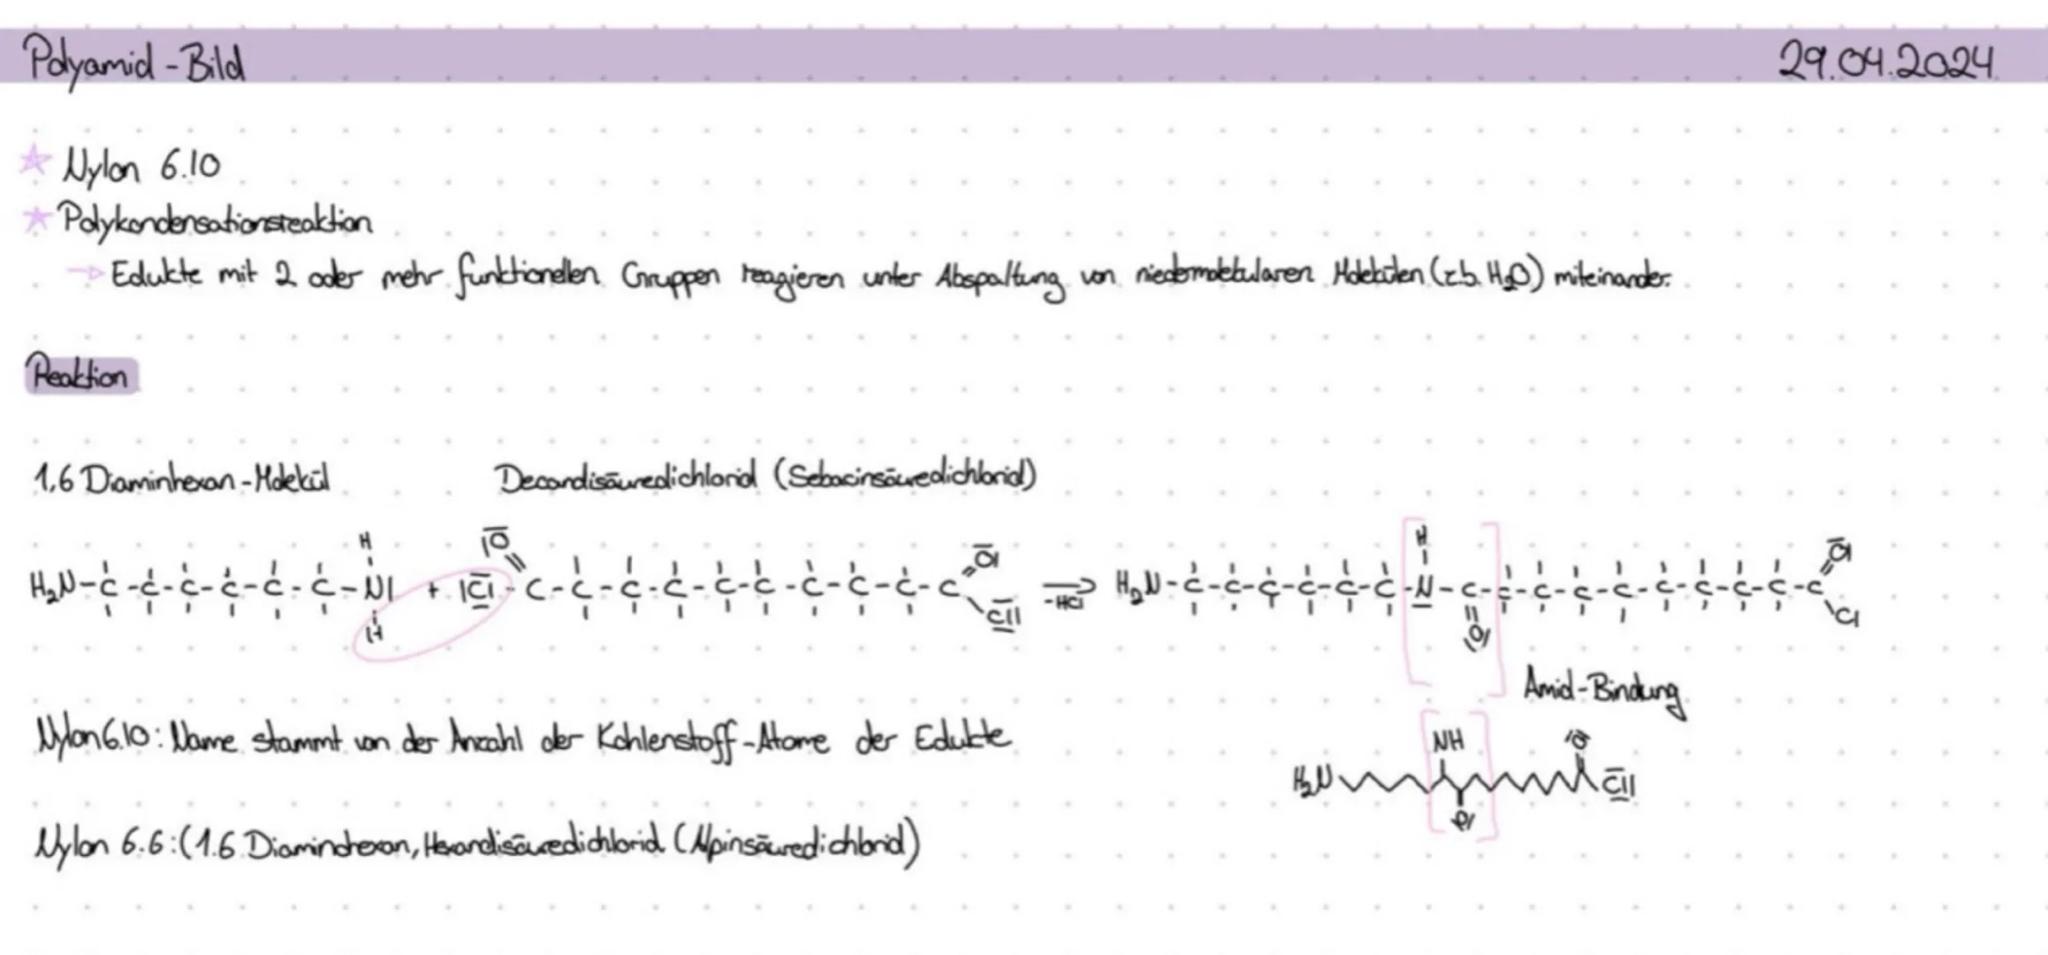 Polyamid - Bild 29.04.2024
Nylon 6.10
Polykondensationsreaktion
→ Edukte mit 2 oder mehr funktionellen Gruppen reagieren unter Abspaltung von niedermolekularen Molekülen (z.b. H₂O) miteinander.
Reaktion
1,6 Diaminhexan-Molekül Decandisäuredichlorid (Sebacinsäuredichlorid)
H |O O|
H₂N-C-C-C-C-C-C-N| + |Cl-C-C-C-C-C-C-C-C-C-C ⇒ H₂N-C-C-C-C-C-C-N-C-C-C-C-C-C-C-C-C-C
H Cl| -HCl H |O| O| Cl
Amid-Bindung
Nylon 6.10: Name stammt von der Anzahl der Kohlenstoff-Atome der Edukte
H₂N NH O| |O Cl|
Nylon 6.6: (1.6 Diaminohexan, Hexandisäuredichlorid (Alpinsäuredichlorid)